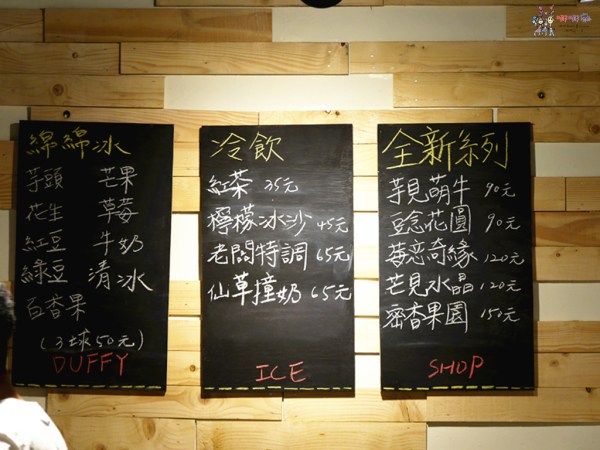 綿綿冰
芋頭 芒果
花生 草莓
紅豆 牛奶
綠豆 清冰
百香果
(3球50元)
DUFFY
冷飲
紅茶 35元
檸檬冰沙 45元
老闆特調 65元
仙草撞奶 65元
ICE
全新系列
芋見萌牛 90元
豆念花圓 90元
莓恋奇緣 120元
芒見水晶 120元
密香果園 150元
SHOP